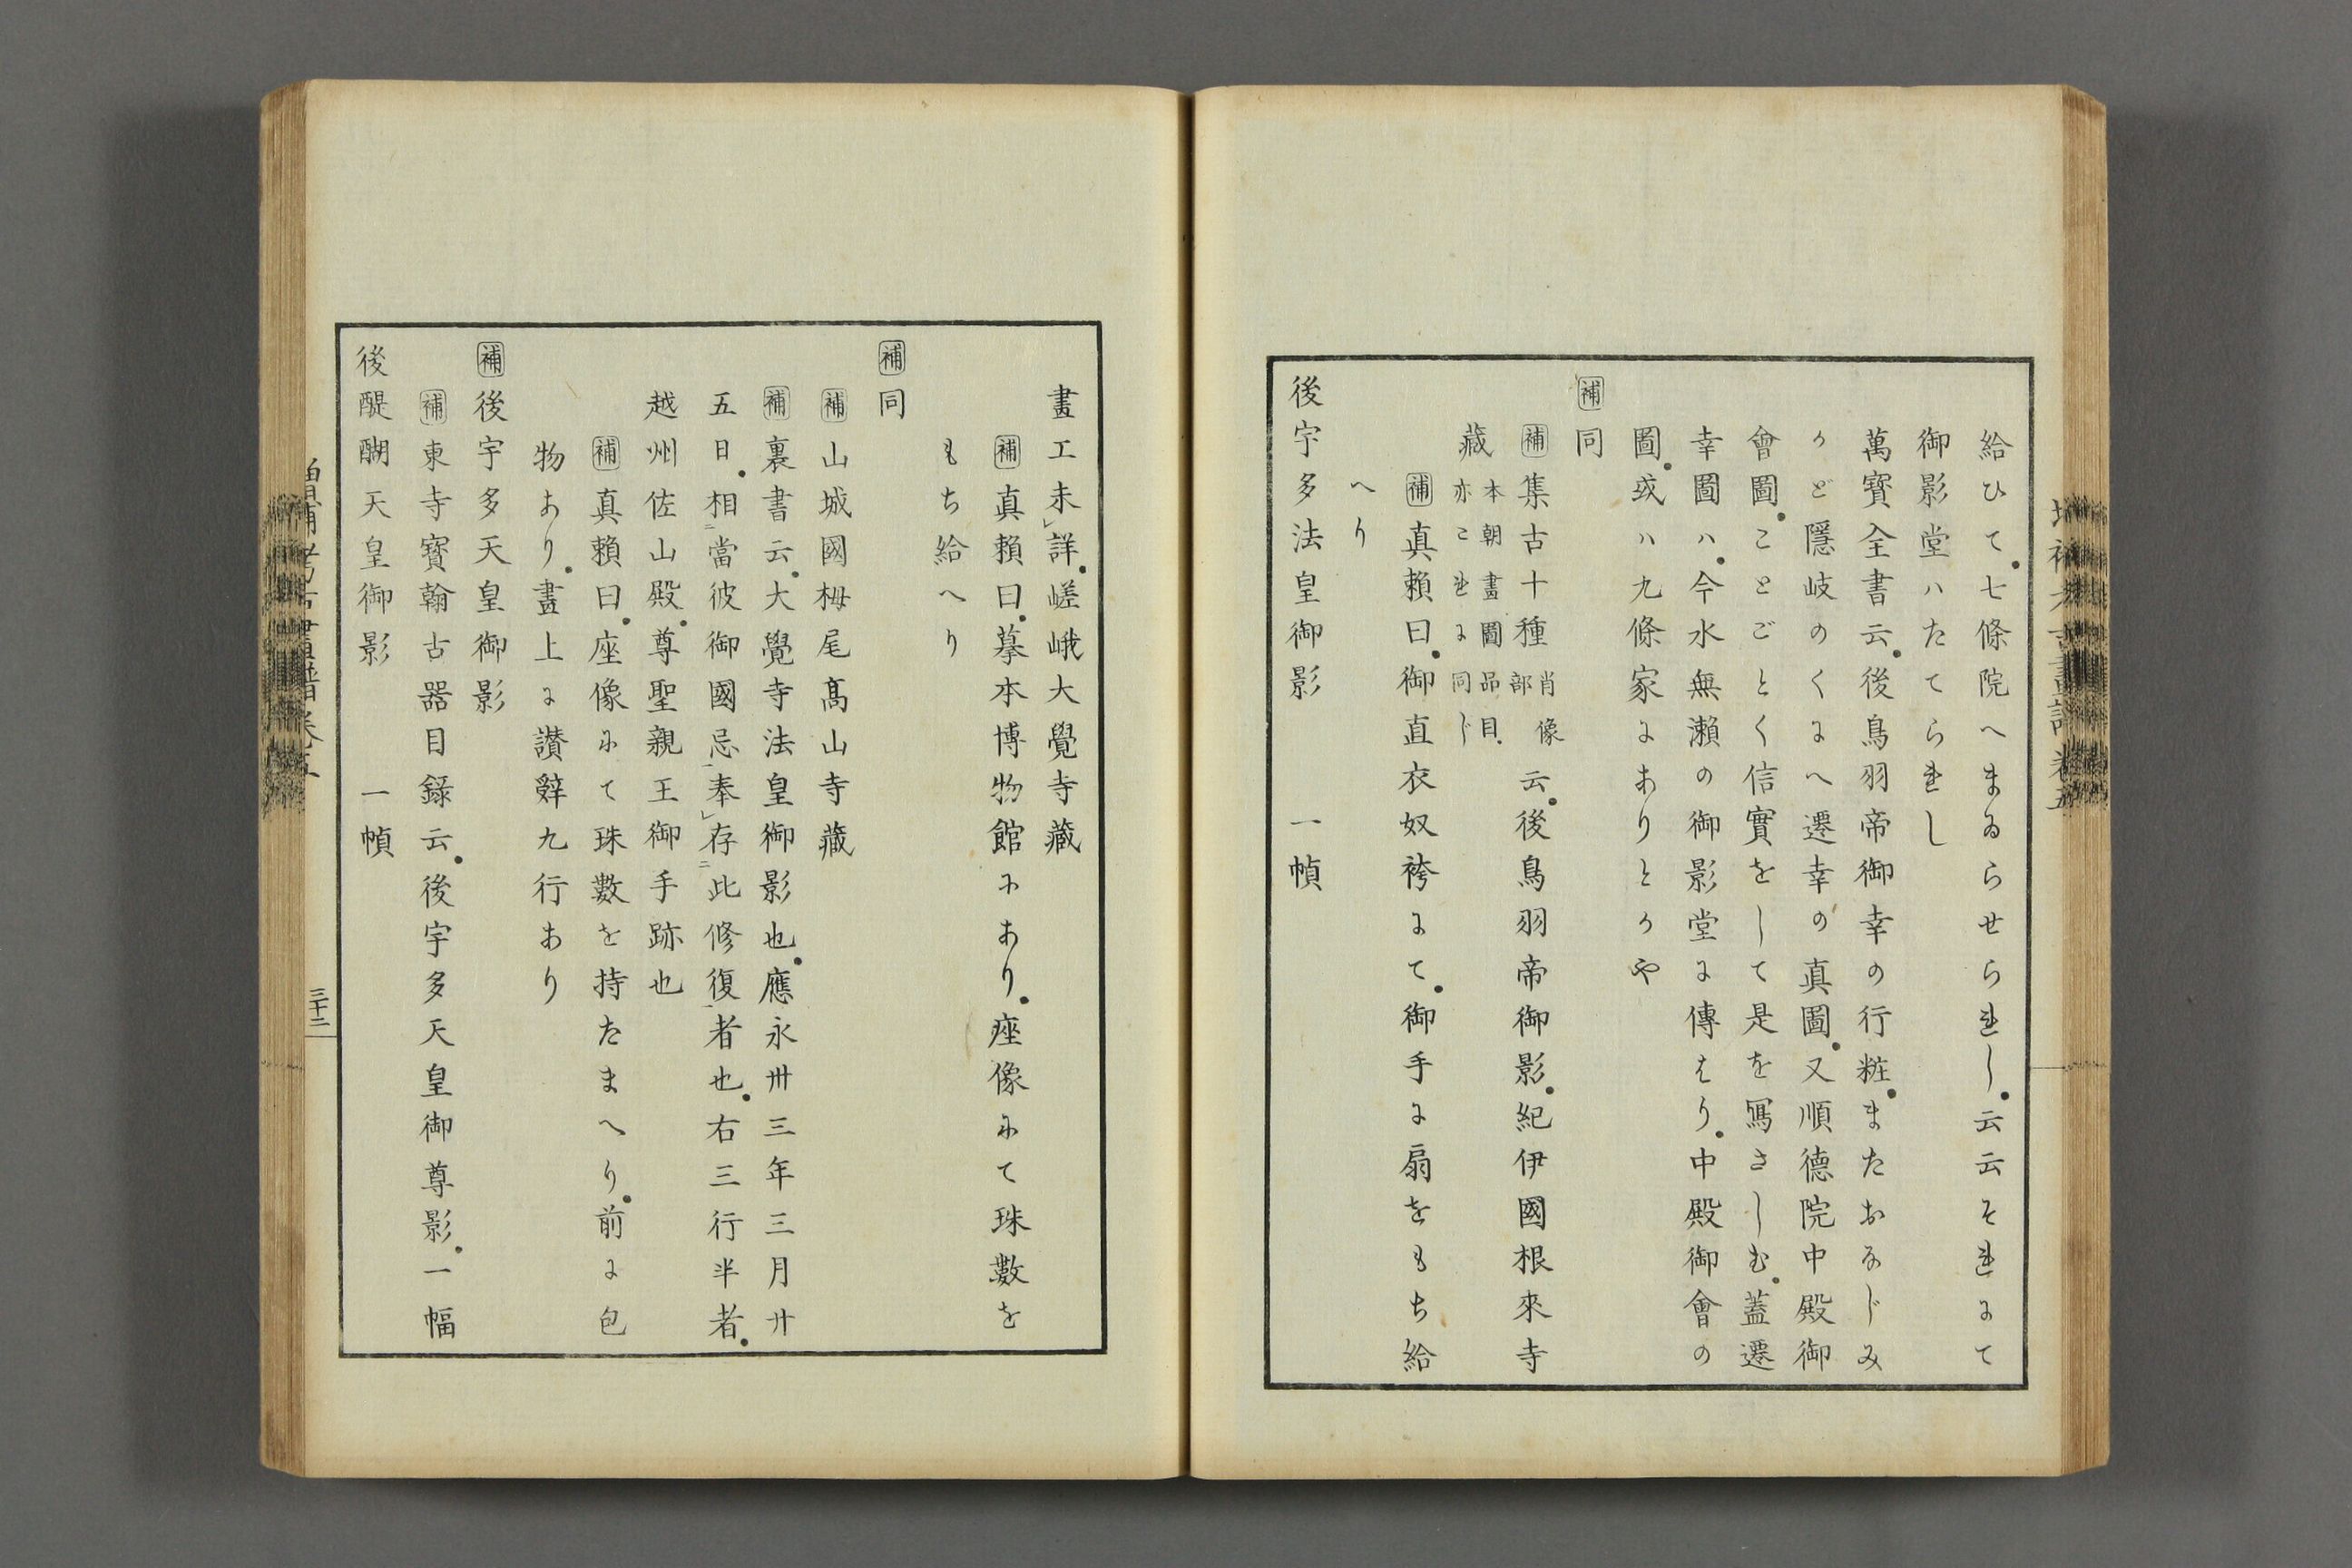 給ひて。七條院へまゐらせられし。云云それにて
御影堂ハたてられし
萬寶全書云。後鳥羽帝御幸の行粧。またおなじみ
かど隱岐のくにへ遷幸の真圖。又順德院中殿御
會圖。ことごとく信實をして是を寫さしむ。蓋遷
幸圖ハ。今水無瀬の御影堂に傳はり。中殿御會の
圖。或ハ九條家にありとかや
補同
補集古十種肖像部云。後鳥羽帝御影。紀伊國根來寺
藏本朝畫圖品目。亦これに同じ
補真頼曰。御直衣奴袴にて。御手に扇をもち給
へり
後宇多法皇御影 一幀
畫工未レ詳。嵯峨大覺寺藏
補真頼曰。摹本博物館にあり。座像にて珠數を
もち給へり
補同
補山城國栂尾髙山寺藏
補裏書云。大覺寺法皇御影也。應永卅三年三月廿
五日。相二當彼御國忌一奉レ存二此修復一者也。右三行半者。
越州佐山殿。尊聖親王御手跡也
補真頼曰。座像にて珠數を持たまへり。前に包
物あり。畫上に讃辭九行あり
補後宇多天皇御影
補東寺寳翰古器目録云。後宇多天皇御尊影。一幅
後醍醐天皇御影 一幀
三十二